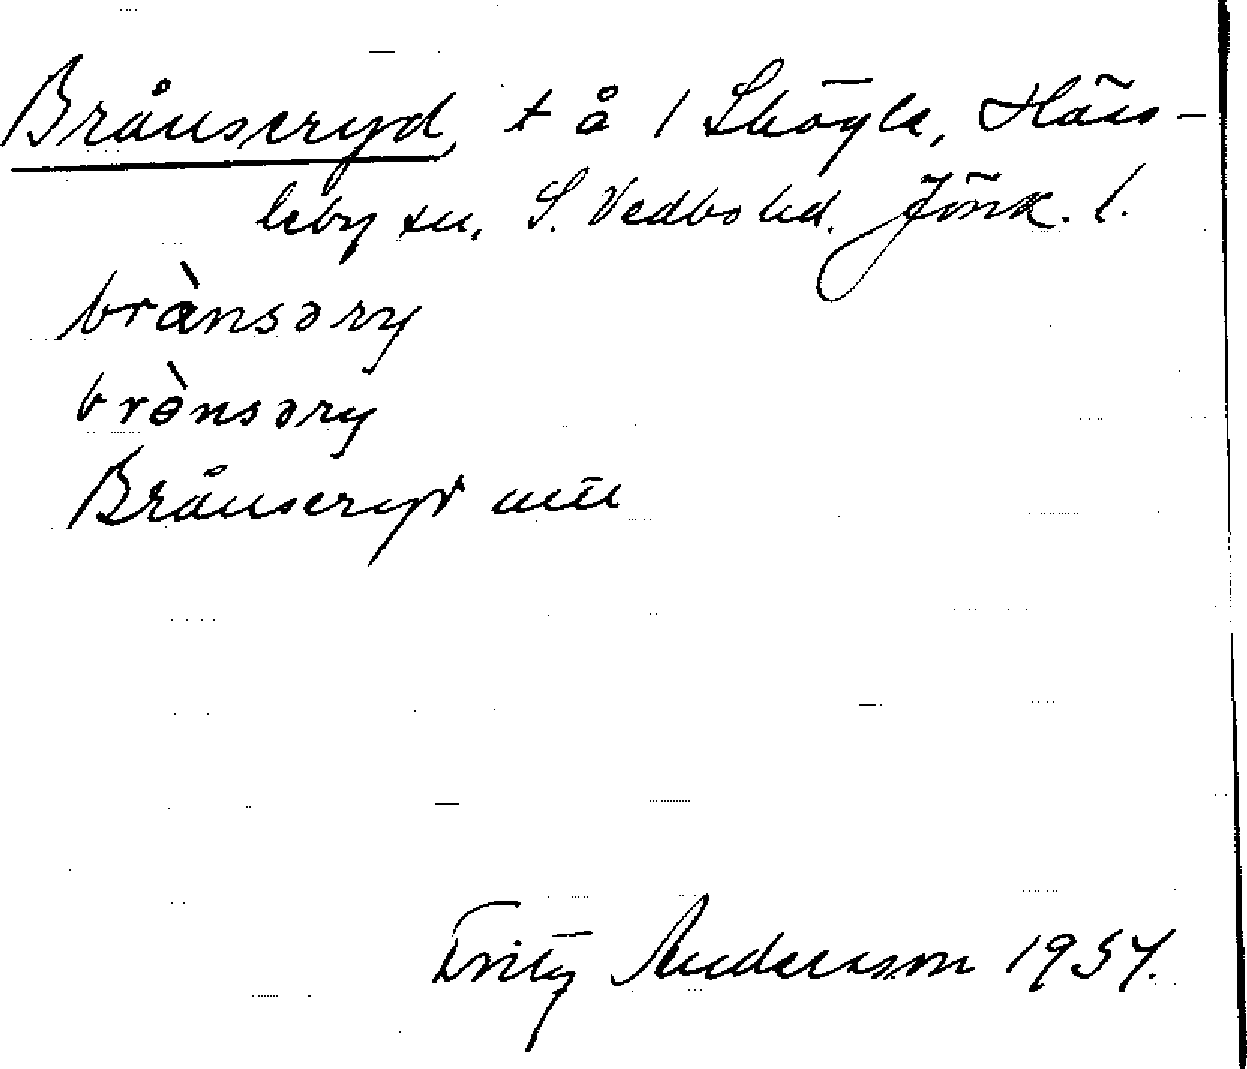 Brånseryd t å 1 Skögle, Häss-
leby sn, S. Vedbo hd. Jönk. l.
brànsəry
brònsəry
Brånseryd
Fritz Andersson 1934.